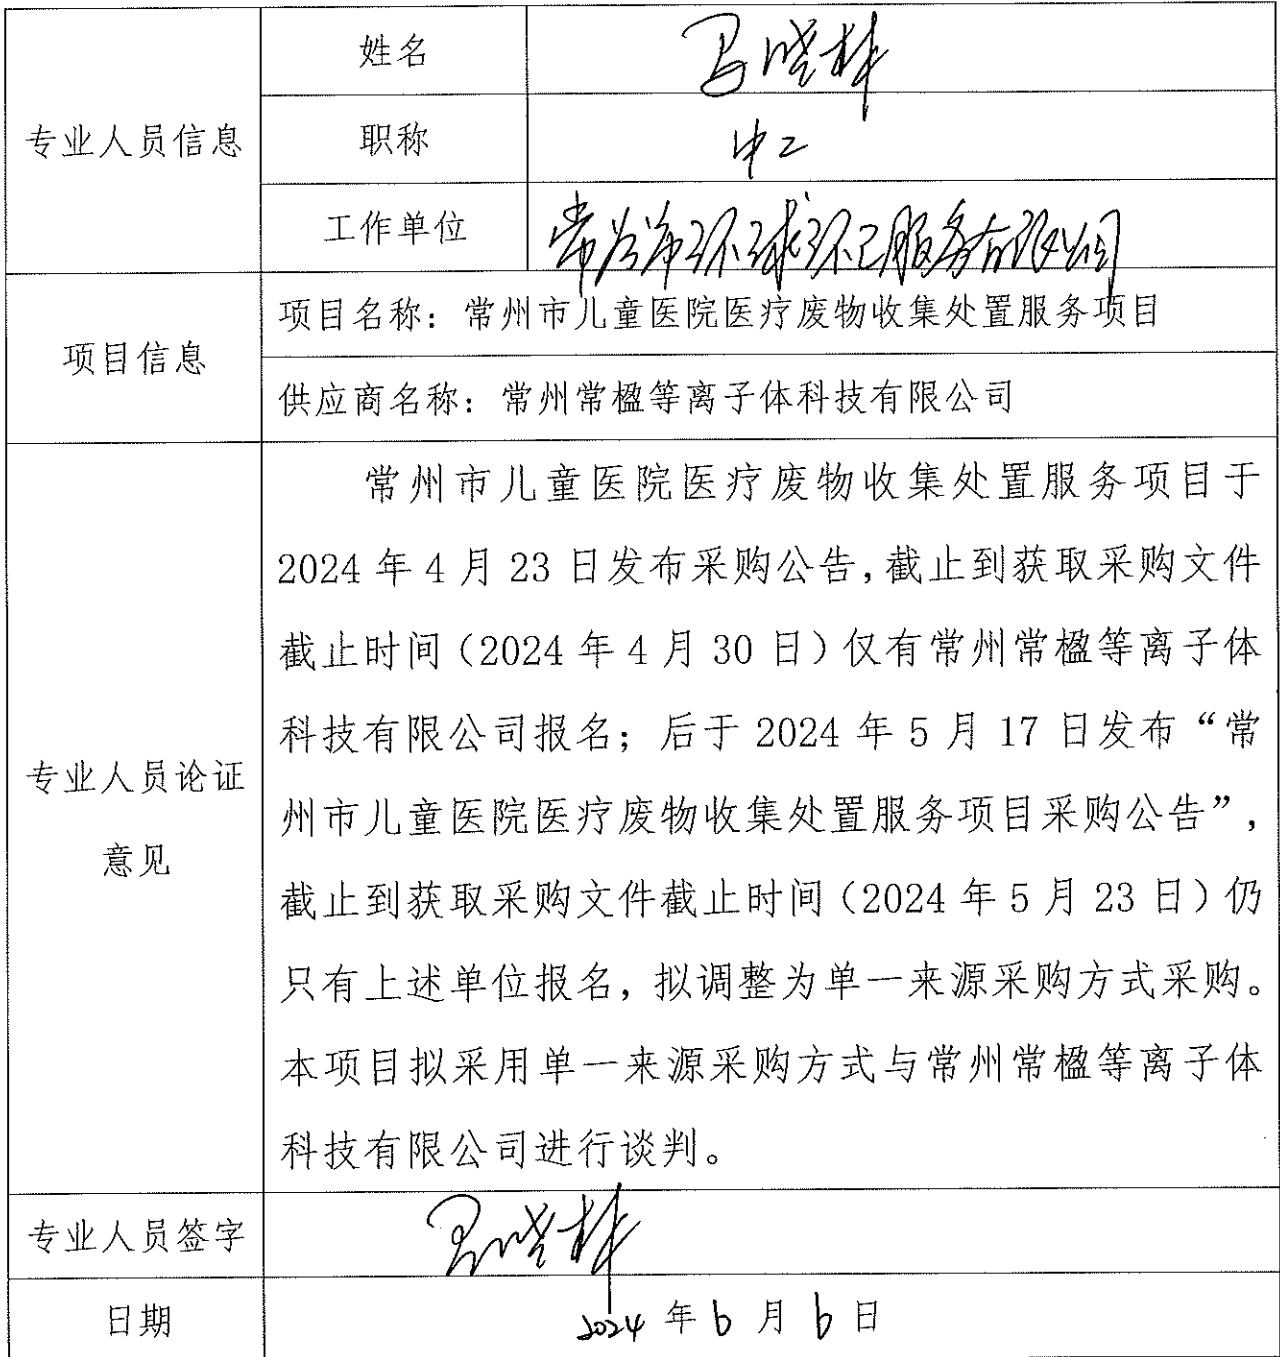 姓名 马晓林
专业人员信息 职称 中工
工作单位 常州市环球环卫服务有限公司
项目名称：常州市儿童医院医疗废物收集处置服务项目
项目信息
供应商名称：常州常楹等离子体科技有限公司
常州市儿童医院医疗废物收集处置服务项目于
2024年4月23日发布采购公告，截止到获取采购文件
截止时间（2024年4月30日）仅有常州常楹等离子体
科技有限公司报名；后于2024年5月17日发布“常
专业人员论证
州市儿童医院医疗废物收集处置服务项目采购公告”，
意见
截止到获取采购文件截止时间（2024年5月23日）仍
只有上述单位报名，拟调整为单一来源采购方式采购。
本项目拟采用单一来源采购方式与常州常楹等离子体
科技有限公司进行谈判。
专业人员签字 马晓林
日期 2024年6月6日